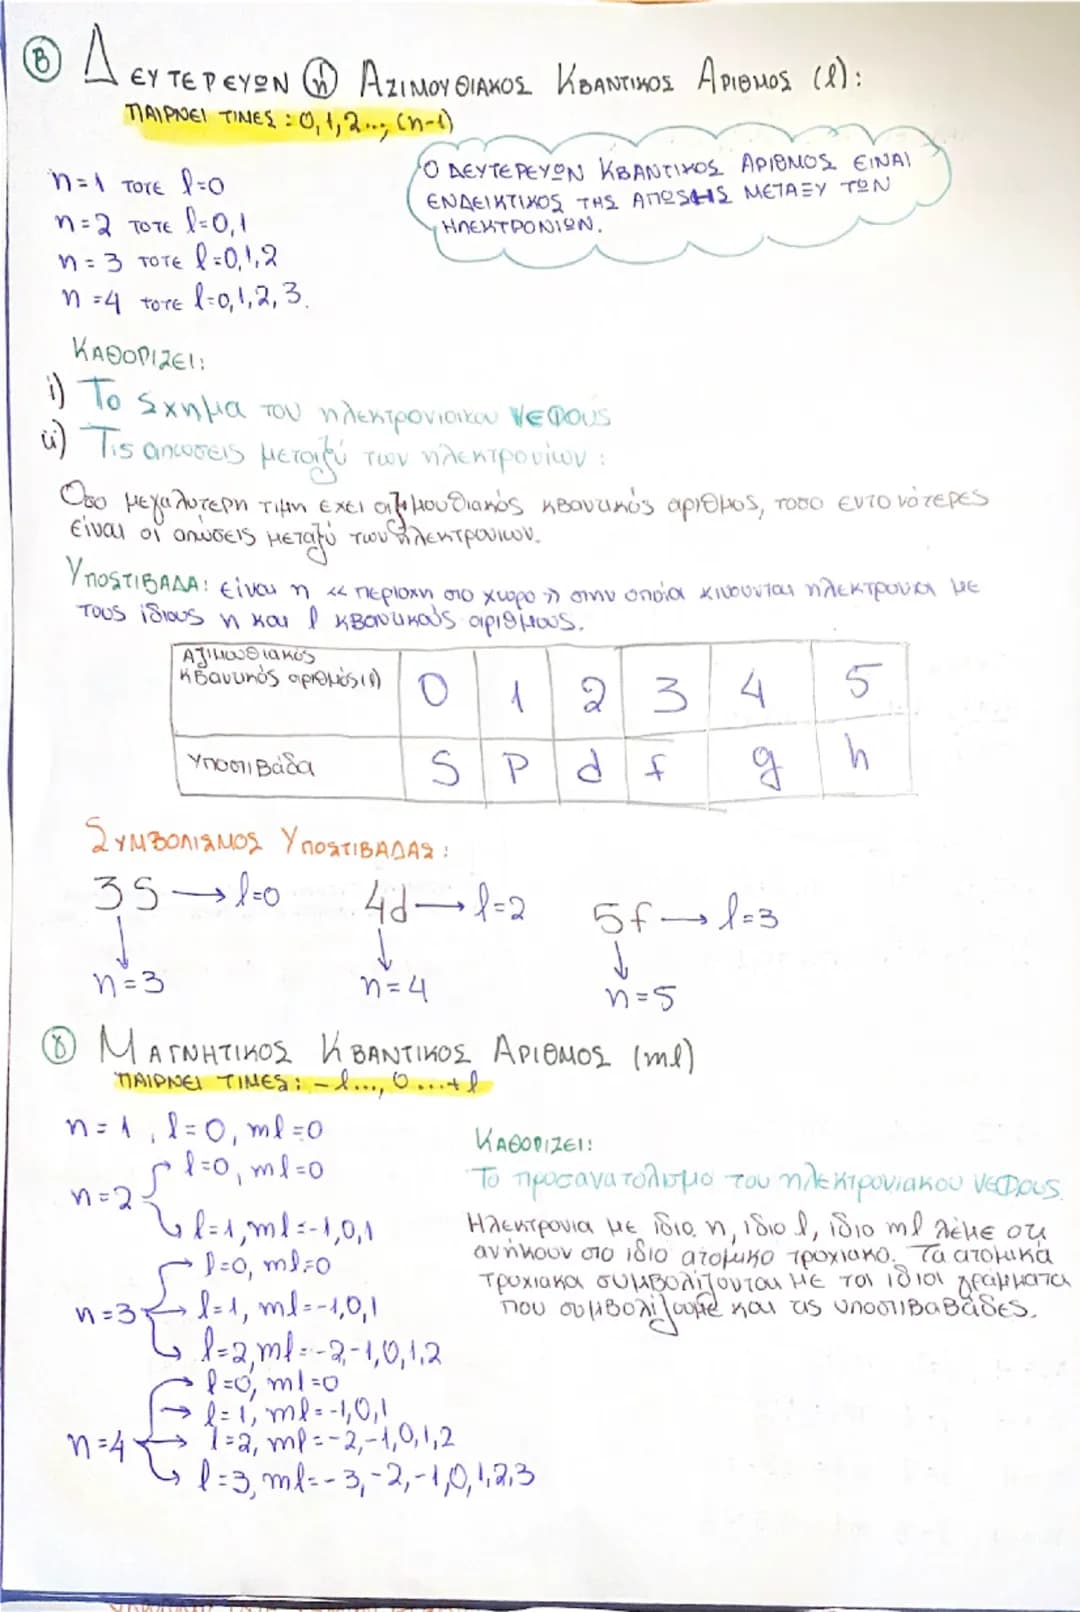 Β ΔΕΥΤΕΡΕΥΩΝ ή ΑΖΙΜΟΥΘΙΑΚΟΣ ΚΒΑΝΤΙΚΟΣ ΑΡΙΘΜΟΣ (l):
ΠΑΙΡΝΕΙ ΤΙΜΕΣ: 0, 1, 2..., (n-1)
n=1 ΤΟΤΕ l=0
n=2 ΤΟΤΕ l=0,1
n=3 ΤΟΤΕ l=0,1,2
n=4 ΤΟΤΕ l=0,1,2,3.
Ο ΔΕΥΤΕΡΕΥΩΝ ΚΒΑΝΤΙΚΟΣ ΑΡΙΘΜΟΣ ΕΙΝΑΙ
ΕΝΔΕΙΚΤΙΚΟΣ ΤΗΣ ΑΠΩΣΗΣ ΜΕΤΑΞΥ ΤΩΝ
ΗΛΕΚΤΡΟΝΙΩΝ.
ΚΑΘΟΡΙΖΕΙ:
i) Το Σχημα του ηλεκτρονιακου ΝΕΦΟUS
ii) Τις απωσεις μεταξύ των ηλεκτρονίων:
Οσο μεγαλυτερη τιμη εχει αζιμουθιακός κβαντικός αριθμος, τοσο εντονότερες
είναι οι απώσεις μεταξύ των ηλεκτρονιων.
ΥΠΟΣΤΙΒΑΔΑ: είναι η « περιοχη στο χωρο » στην οποία κινουνται ηλεκτρονια με
τους ίδιους n και l κβαντικούς αριθμους.
Αζιμουθιακός
κβαντικός αριθμός (l) 0 1 2 3 4 5
Υποστιβάδα S P d f g h
ΣΥΜΒΟΛΙΣΜΟΣ ΥΠΟΣΤΙΒΑΔΑΣ:
3S → l=0 4d → l=2 5f → l=3
n=3 n=4 n=5
γ ΜΑΓΝΗΤΙΚΟΣ ΚΒΑΝΤΙΚΟΣ ΑΡΙΘΜΟΣ (ml)
ΠΑΙΡΝΕΙ ΤΙΜΕΣ: -l..., 0...+l
n=1, l=0, ml=0
l=0, ml=0
n=2
l=1, ml=-1,0,1
l=0, ml=0
n=3 l=1, ml=-1,0,1
l=2, ml=-2,-1,0,1,2
l=0, ml=0
l=1, ml=-1,0,1
n=4 l=2, ml=-2,-1,0,1,2
l=3, ml=-3,-2,-1,0,1,2,3
ΚΑΘΟΡΙΖΕΙ:
Το προσανατολισμο του ηλεκτρονιακου ΝΕΦΟUS
Ηλεκτρονια με ίδιο n, ιδιο l, ίδιο ml λέμε οτι
ανήκουν στο ιδιο ατομικο τροχιακο. Τα ατομικά
τροχιακα συμβολίζονται με τα ίδια γράμματα
που συμβολίζουμε και τις υποστιβαβάδες.